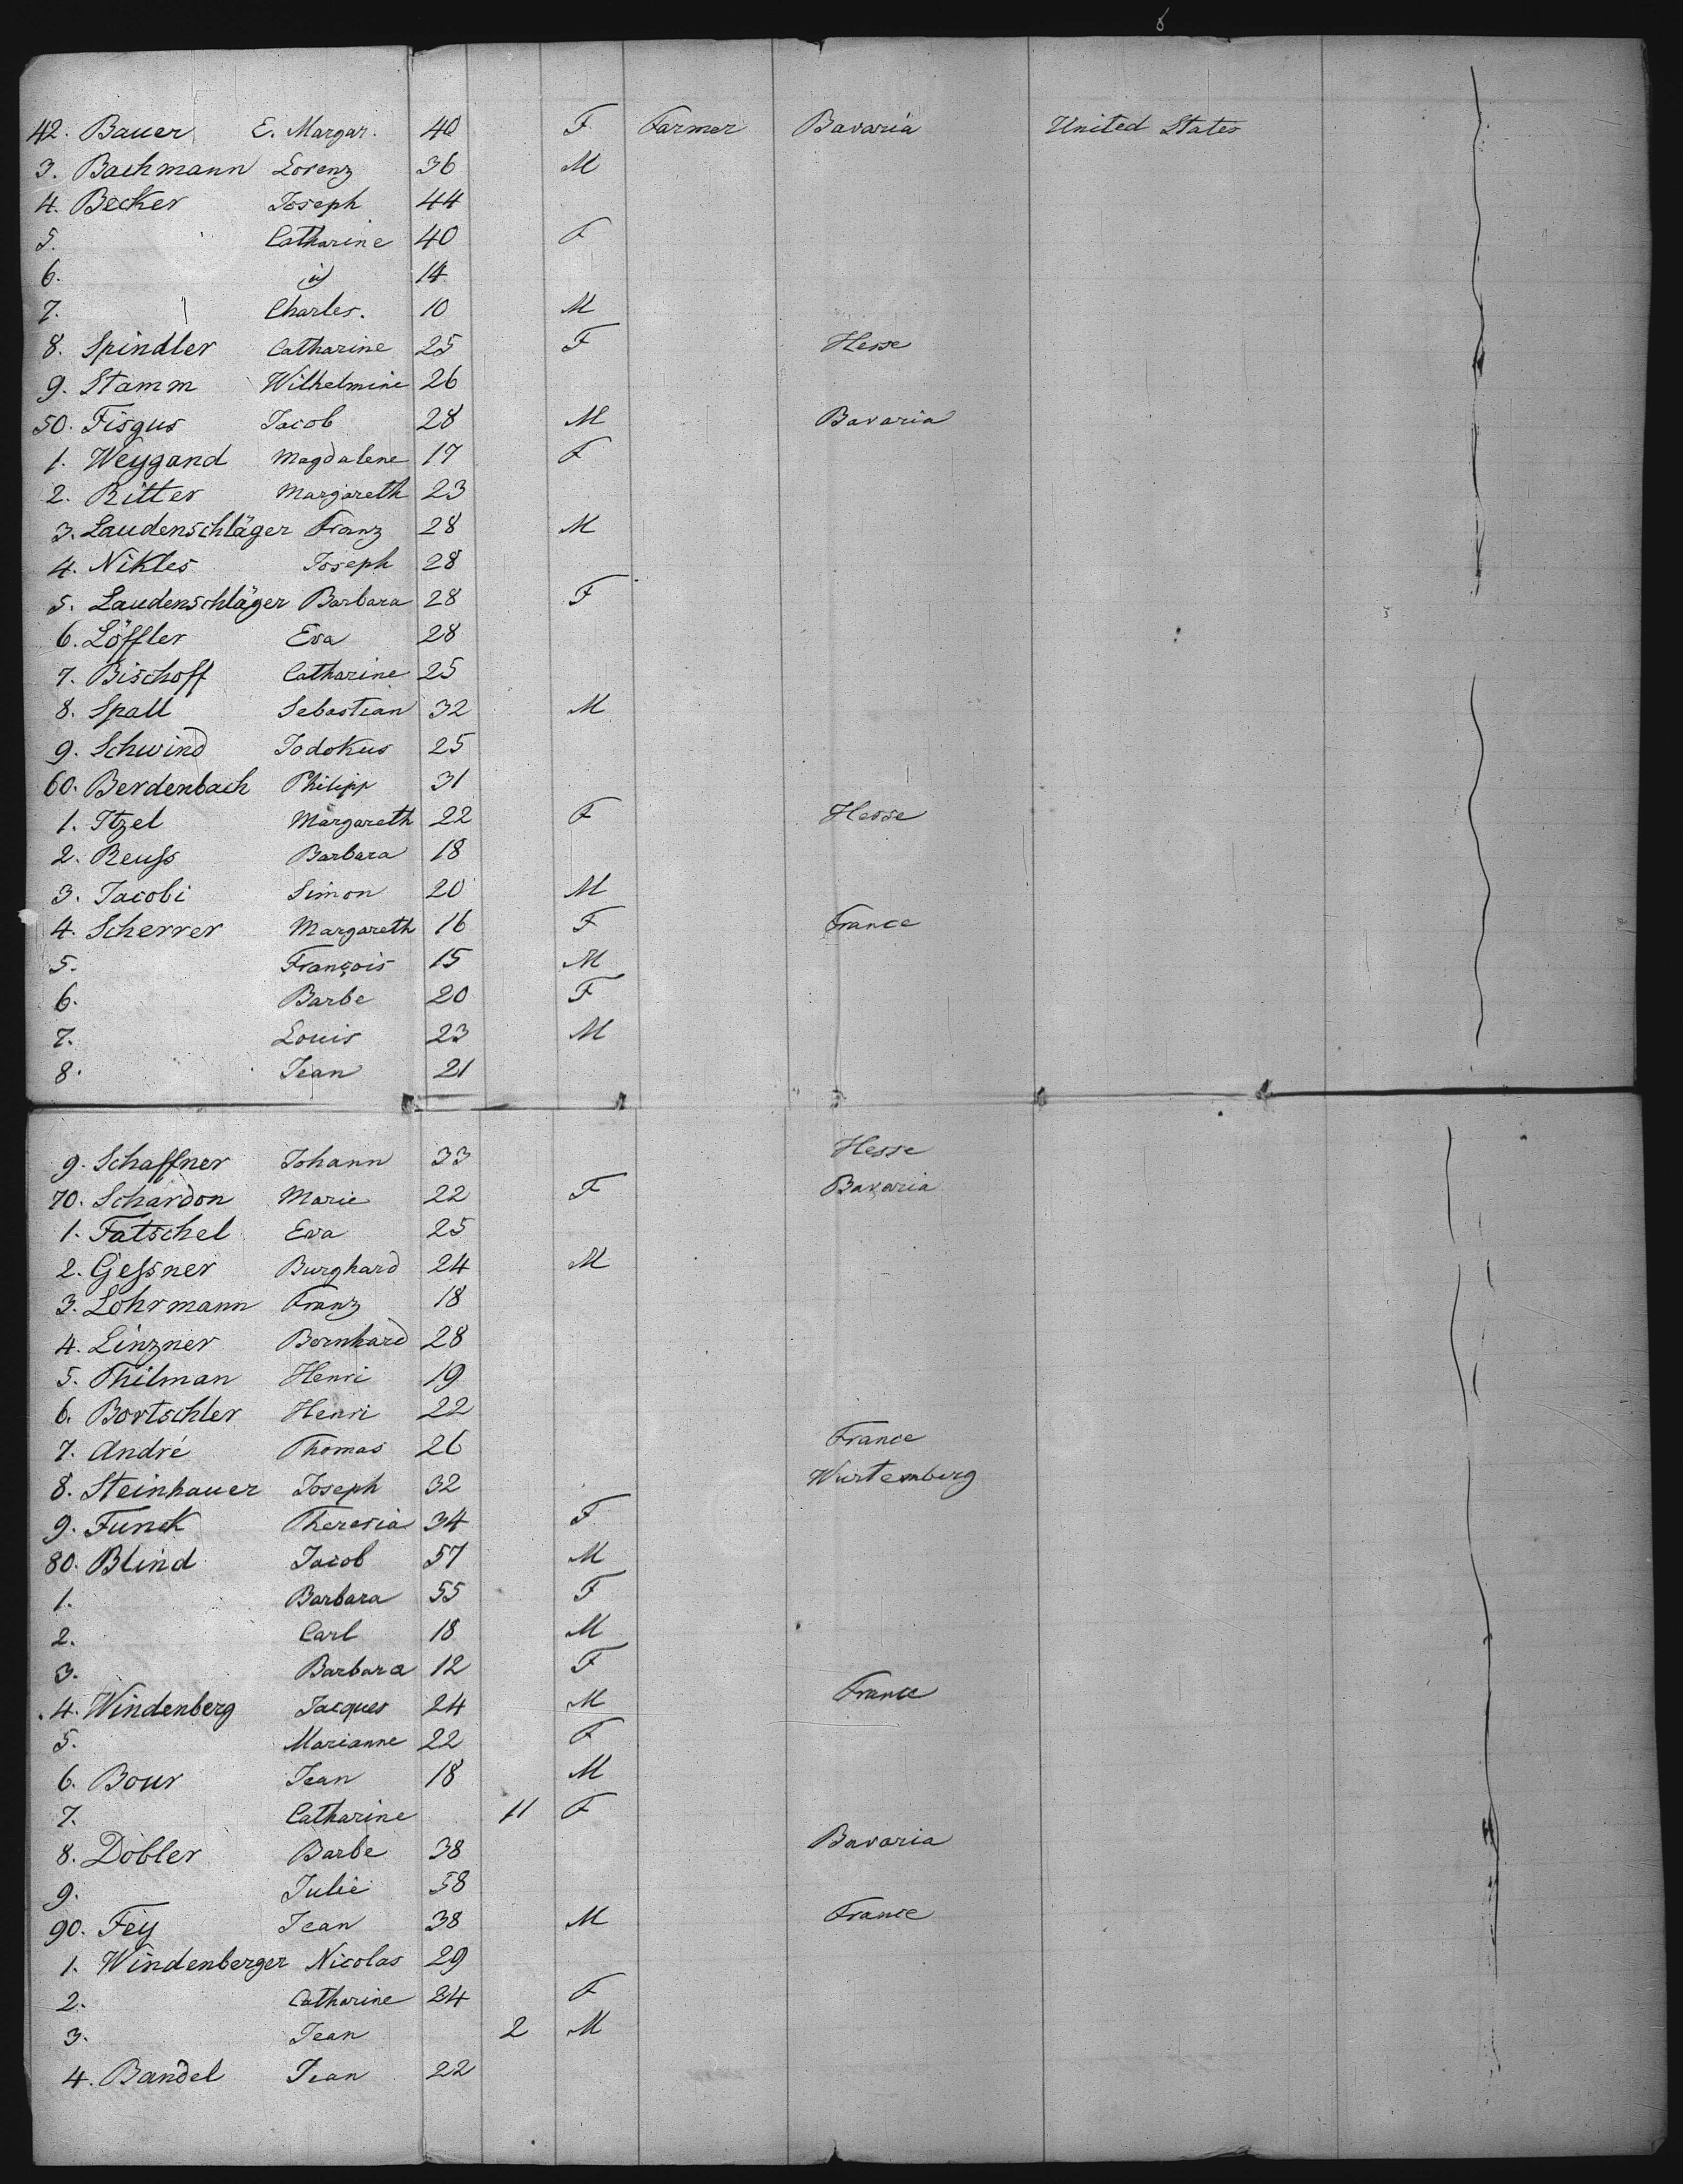 6
42. Bauer E. Margar. 40 F Farmer Bavaria United States
3. Bachmann Lorenz 36 M
4. Becker Joseph 44
5. Catharine 40 F
6. id 14
7. Charles. 10 M
8. Spindler Catharine 25 F Hesse
9. Stamm Wilhelmine 26
50. Fisgus Jacob 28 M Bavaria
1. Weygand Magdalene 17 F
2. Ritter Margareth 23
3. Laudenschläger Franz 28 M
4. Nikles Joseph 28
5. Laudenschläger Barbara 28 F
6. Löffler Eva 28
7. Bischoff Catharine 25
8. Spall Sebastian 32 M
9. Schwind Jodokus 25
60. Berdenbach Philipp 31
1. Itzel Margareth 22 F Hesse
2. Reuſs Barbara 18
3. Jacobi Simon 20 M
4. Scherrer Margareth 16 F France
5. François 15 M
6. Barbe 20 F
7. Louis 23 M
8. Jean 21
9. Schaffner Johann 33 Hesse
70. Schardon Marie 22 F Bavaria
1. Fatschel Eva 25
2. Geſsner Burghard 24 M
3. Lohrmann Franz 18
4. Linzner Bernhard 28
5. Thilman Henri 19
6. Bortschler Henri 22
7. André Thomas 26 France
8. Steinhauer Joseph 32 Wurtemberg
9. Funck Theresia 34 F
80. Blind Jacob 57 M
1. Barbara 55 F
2. Carl 18 M
3. Barbara 12 F
4. Windenberg Jacques 24 M France
5. Marianne 22 F
6. Bour Jean 18 M
7. Catharine 11 F
8. Dobler Barbe 38 Bavaria
9. Julie 58
90. Fey Jean 38 M France
1. Windenberger Nicolas 29
2. Catharine 24 F
3. Jean 2 M
4. Bandel Jean 22